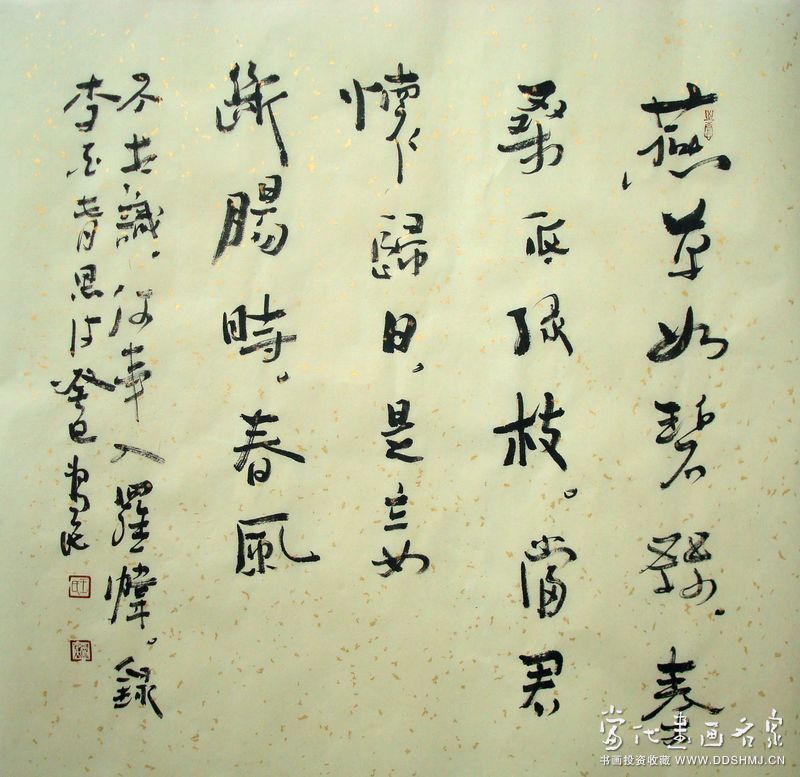 燕草如碧絲，秦
桑低緑枝。當君
懷歸日，是妾
斷腸時。春風
不相識，何事入羅幃。録
李白春思詩 癸巳
當代書画名家
书画投资收藏 WWW.DDSHMJ.CN